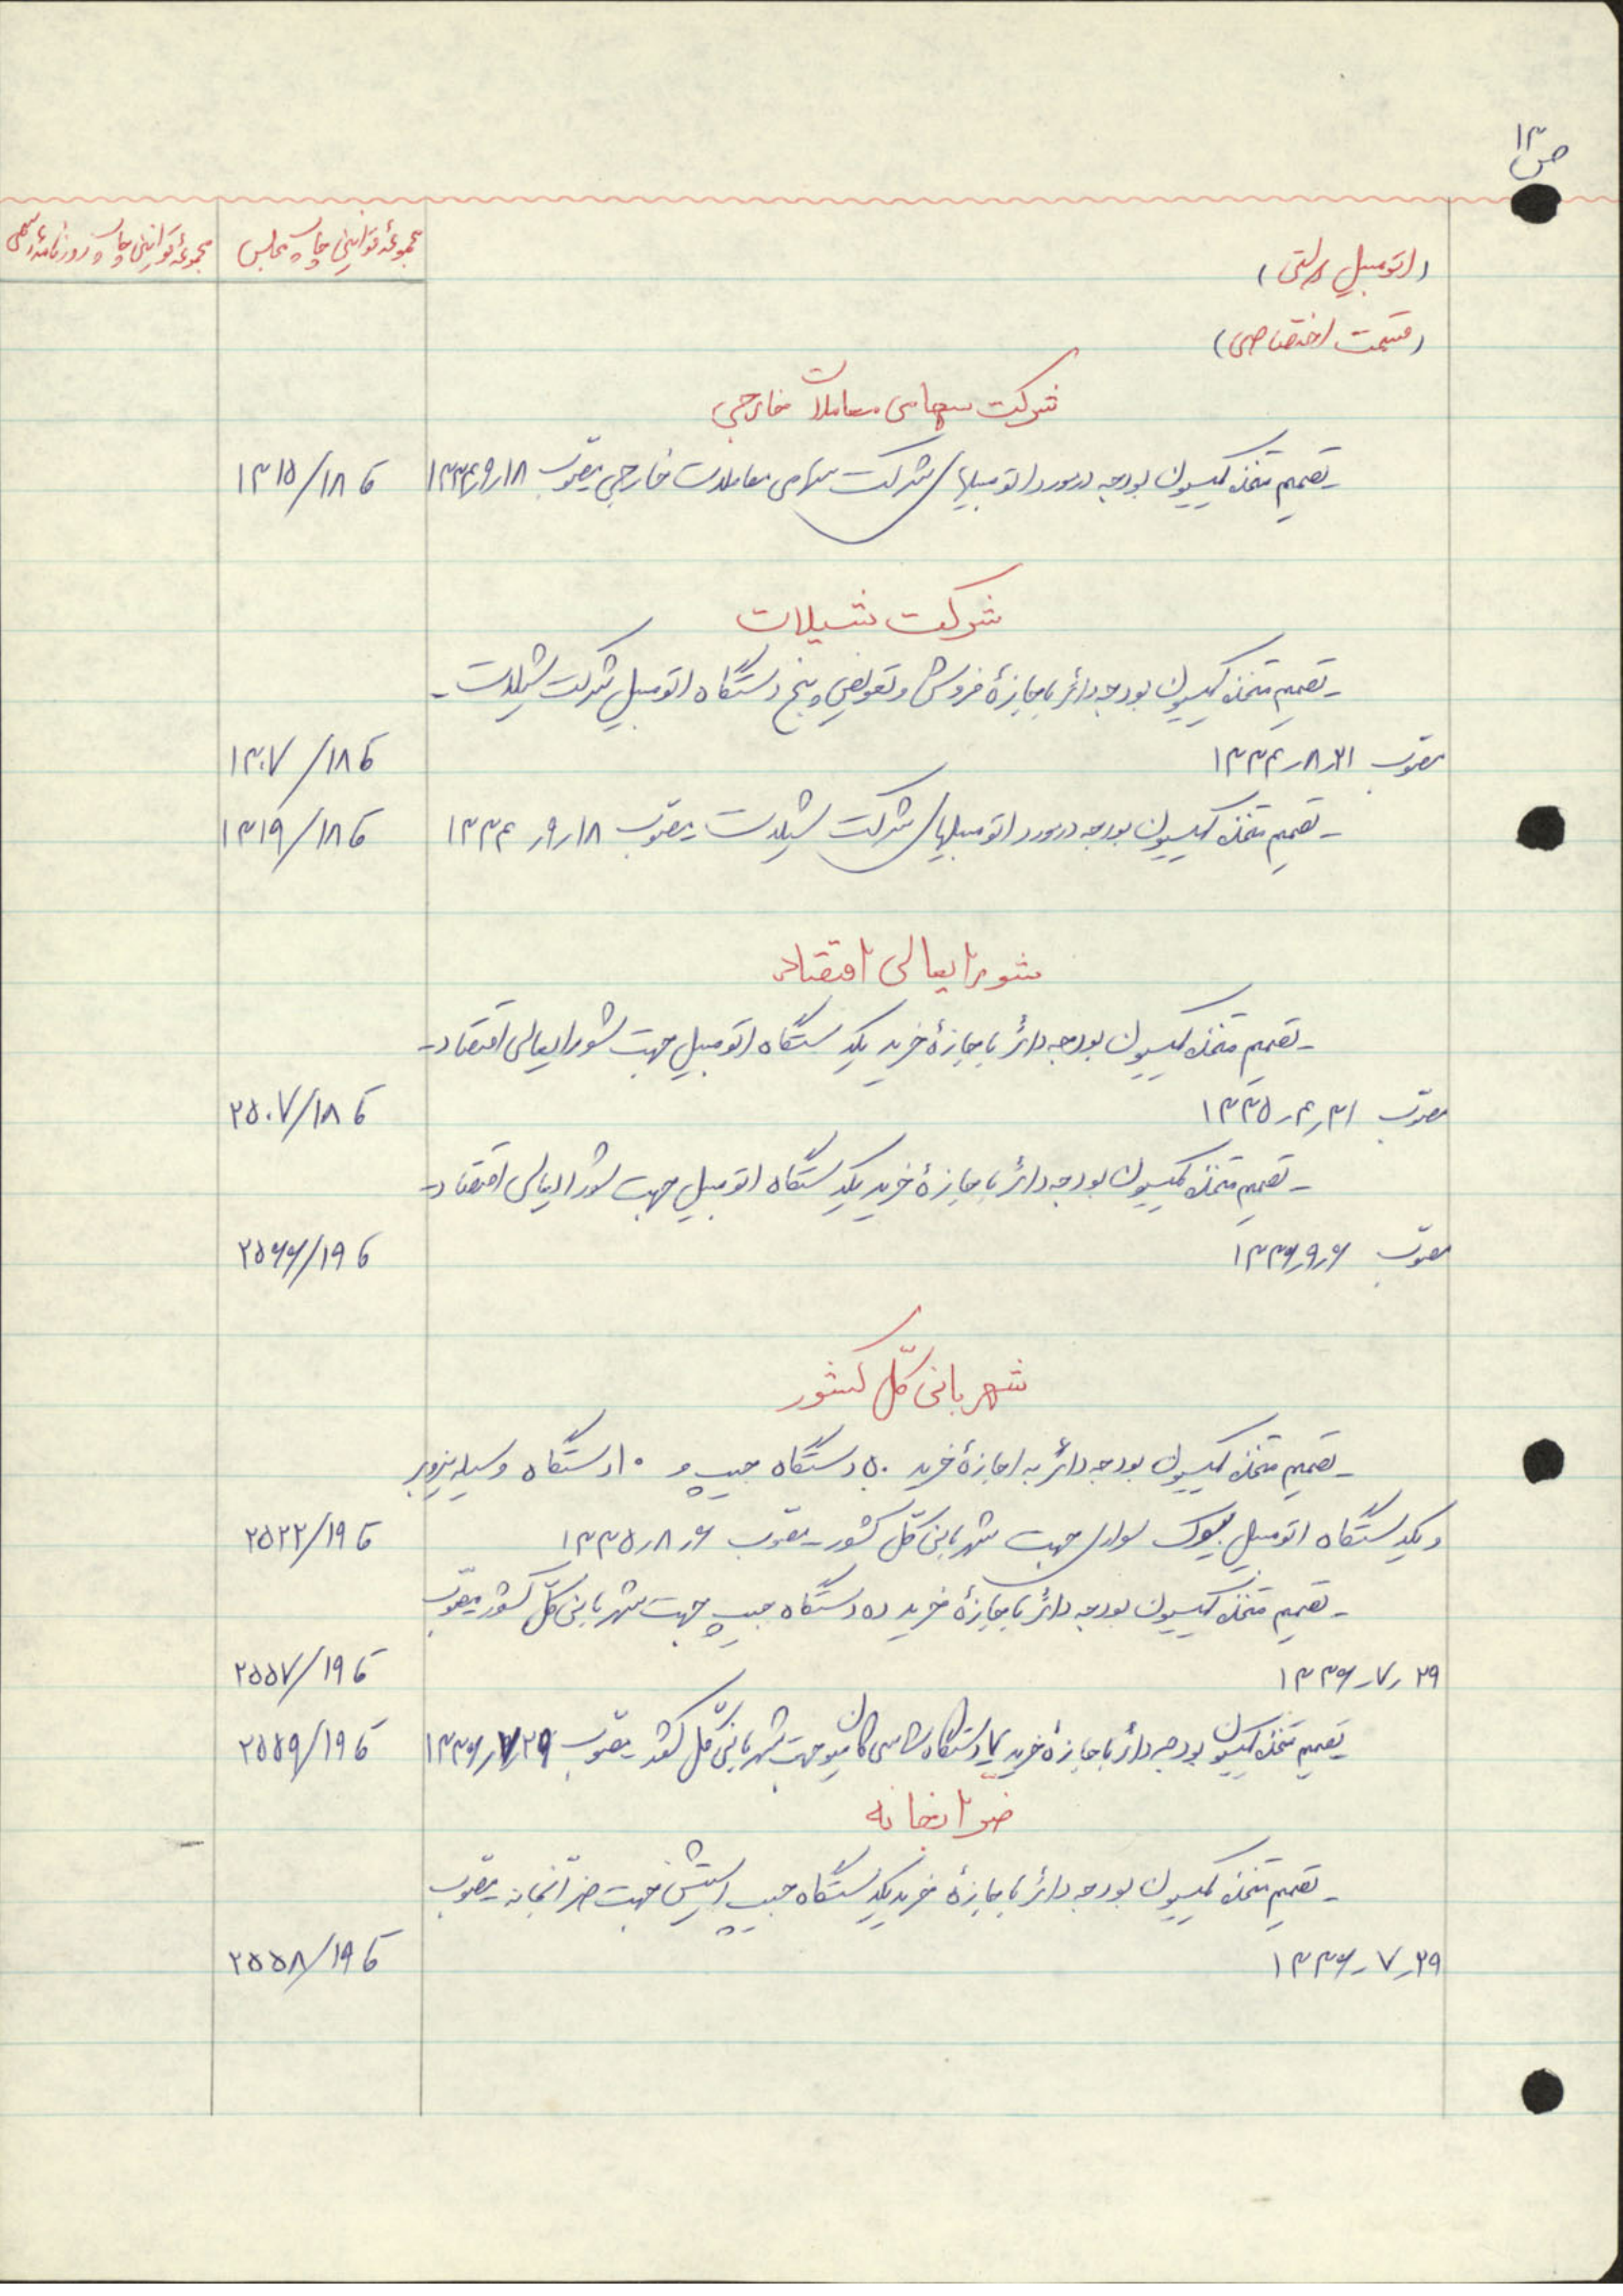 ص ۱۳
مجموعهٔ قوانین چاپ مجلس
مجموعهٔ قوانین چاپ روزنامهٔ رسمی
(اتومبیل دولتی)
(قسمت اختصاصی)
شرکت سهامی معاملات خارجی
ـ تصمیم متخذه کمیسیون بودجه در مورد اتومبیلهای شرکت سهامی معاملات خارجی مصوب ۱۸ر۹ر۱۳۳۴ ۱۳۱۵/۱۸ ق
شرکت شیلات
ـ تصمیم متخذه کمیسیون بودجه دائر باجازهٔ فروش و تعویض پنج دستگاه اتومبیل شرکت شیلات ـ
مصوب ۲۱ر۸ر۱۳۳۴ ۱۳۰۷/۱۸ ق
ـ تصمیم متخذه کمیسیون بودجه در مورد اتومبیلهای شرکت شیلات مصوب ۱۸ر۹ر۱۳۳۴ ۱۳۱۹/۱۸ ق
شورایعالی اقتصاد
ـ تصمیم متخذه کمیسیون بودجه دائر باجازهٔ خرید یکدستگاه اتومبیل جهت شورایعالی اقتصاد ـ
مصوب ۳۱ر۴ر۱۳۳۵ ۲۵۰۷/۱۸ ق
ـ تصمیم متخذه کمیسیون بودجه دائر باجازهٔ خرید یکدستگاه اتومبیل جهت شورایعالی اقتصاد ـ
مصوب ۶ر۹ر۱۳۳۶ ۲۵۶۶/۱۹ ق
شهربانی کلّ کشور
ـ تصمیم متخذه کمیسیون بودجه دائر به اجازهٔ خرید ۵۰ دستگاه جیپ و ۱۰ دستگاه وسیله
و یکدستگاه اتومبیل بیوک سواری جهت شهربانی کلّ کشور ـ مصوب ۶ر۸ر۱۳۳۵ ۲۵۲۲/۱۹ ق
ـ تصمیم متخذه کمیسیون بودجه دائر باجازهٔ خرید ده دستگاه جیپ جهت شهربانی کلّ کشور مصوّب
۲۹ر۷ر۱۳۳۶ ۲۵۵۷/۱۹ ق
تصمیم متخذه کمیسیون بودجه دائر باجازهٔ خرید دستگاه شاسی کامیون جهت شهربانی کلّ کشور مصوّب ۲۹ر۷ر۱۳۳۶ ۲۵۵۹/۱۹ ق
ضرّابخانه
ـ تصمیم متخذه کمیسیون بودجه دائر باجازهٔ خرید یکدستگاه جیپ استیشن جهت ضرّابخانه مصوب
۲۹ر۷ر۱۳۳۶ ۲۵۵۸/۱۹ ق